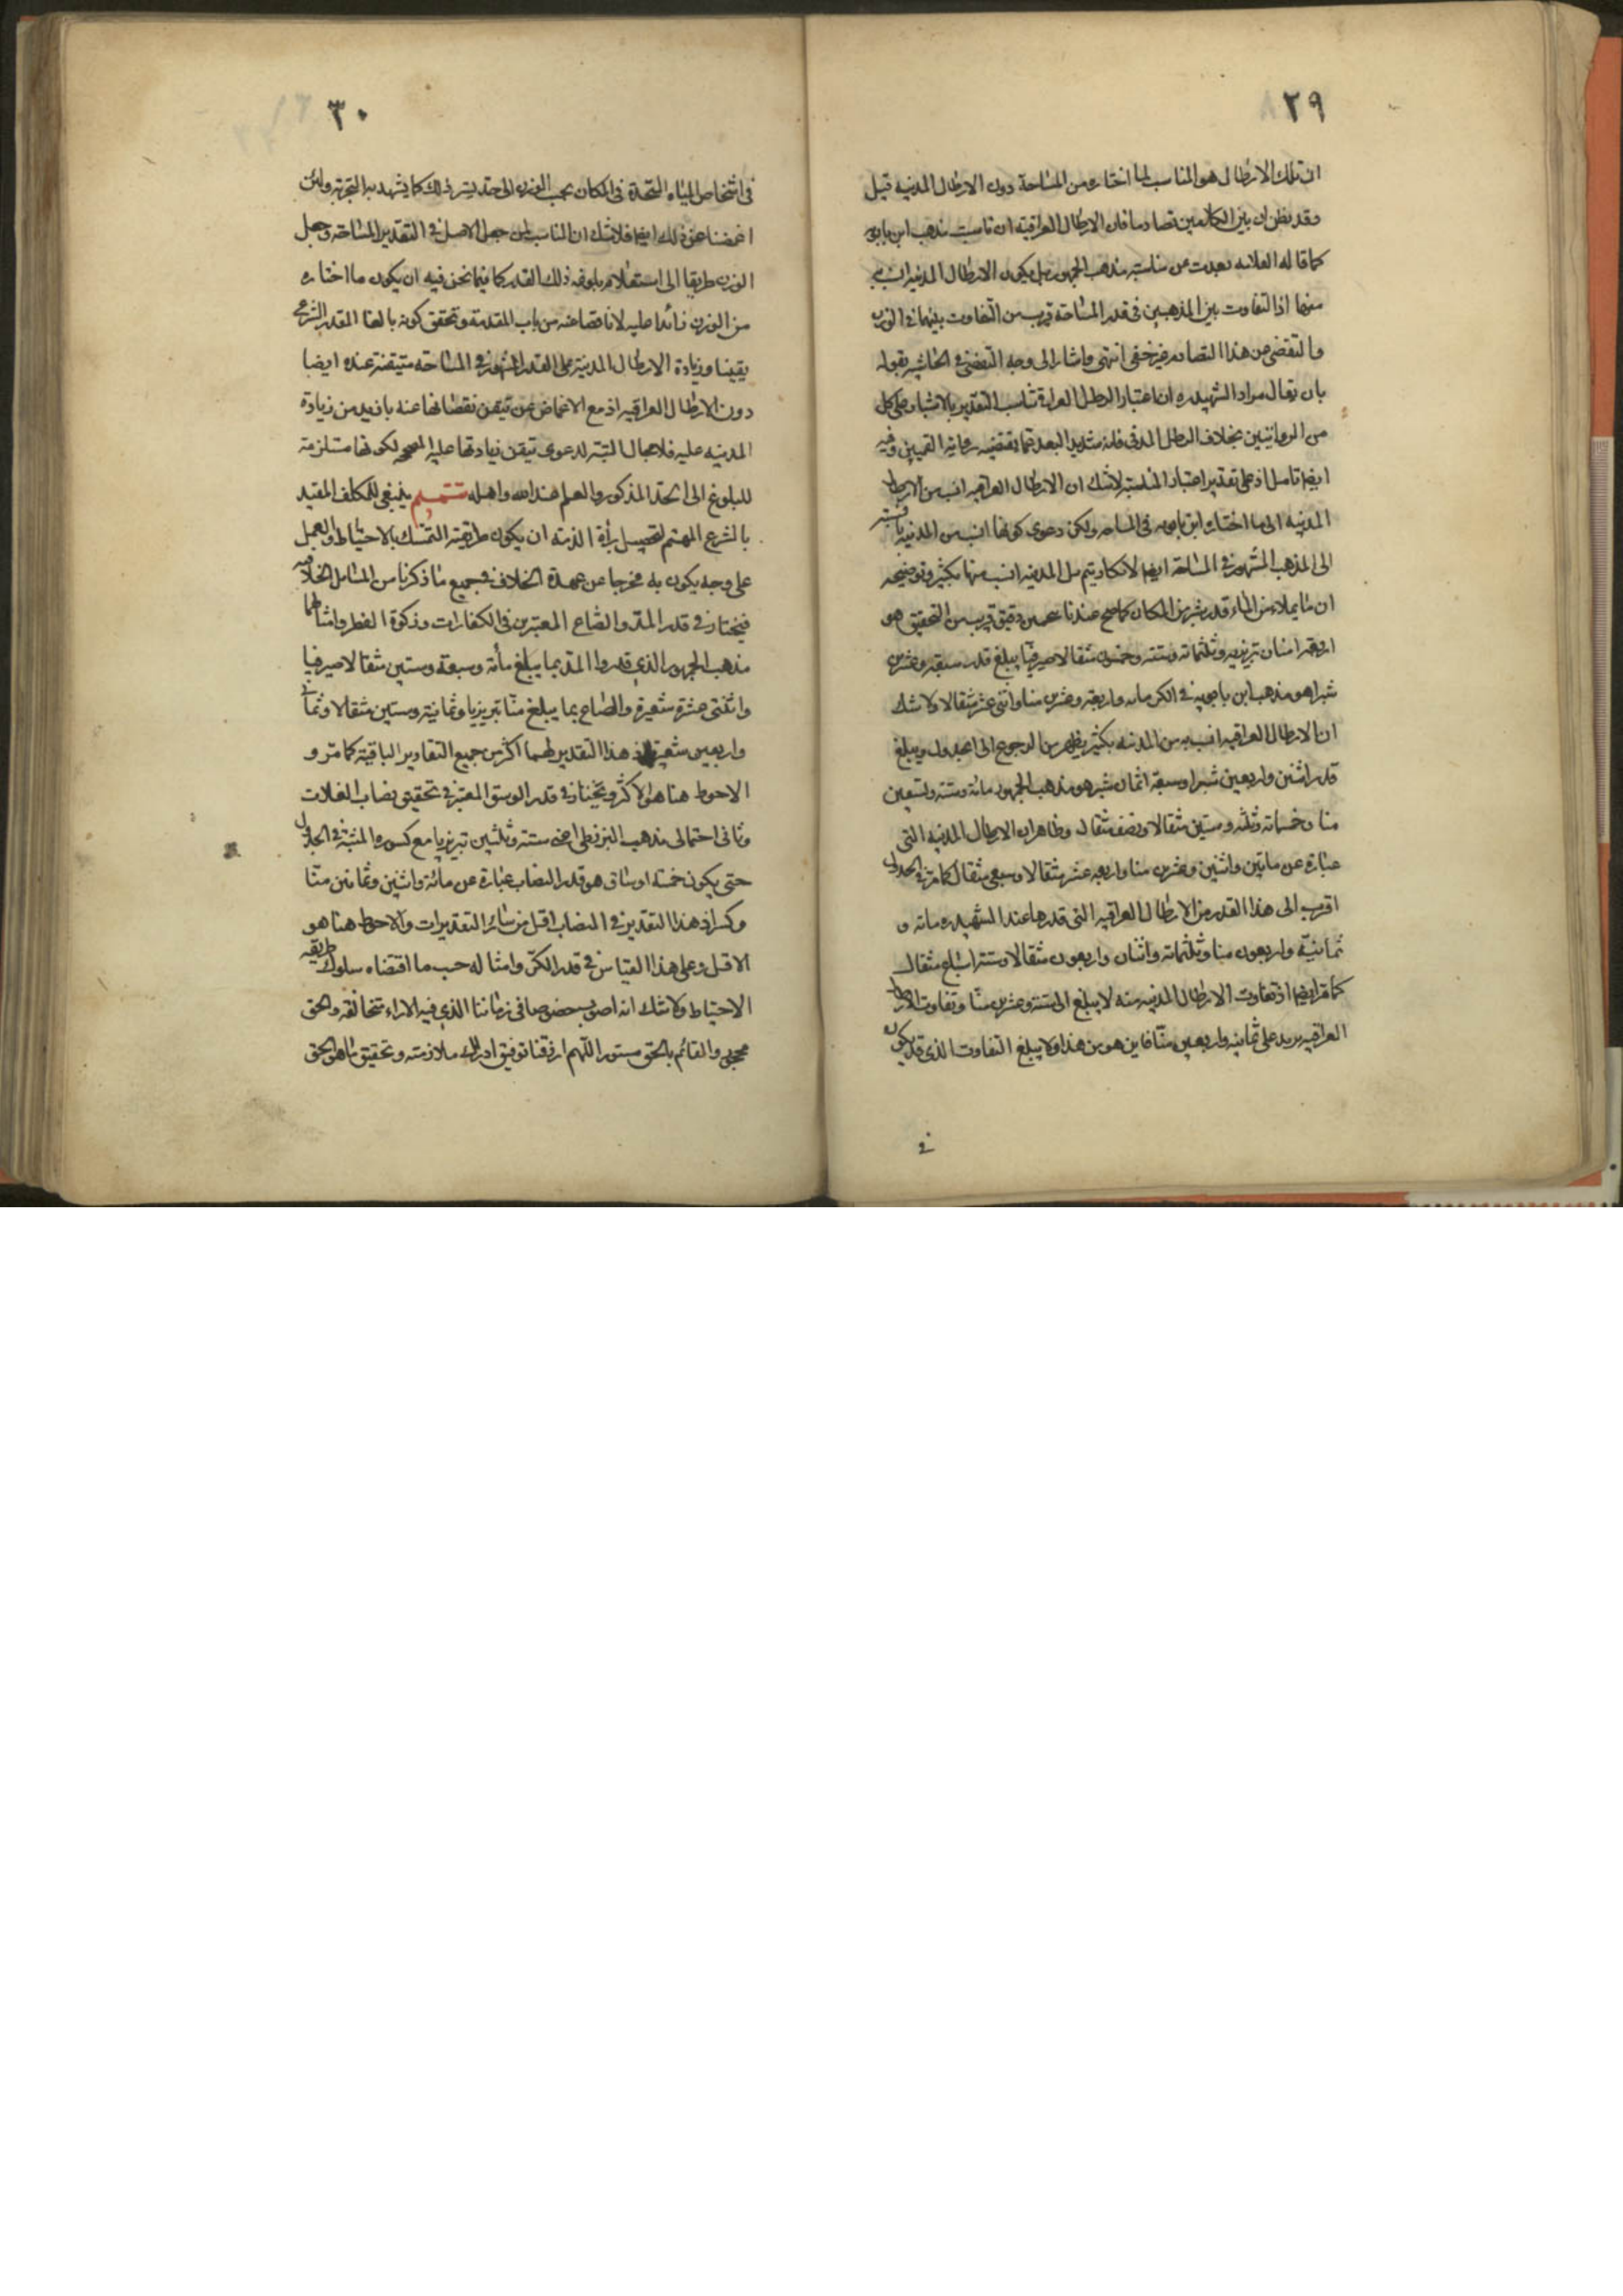 ٢٩
ان تلك الارطال هو المناسب لما اختاره من المساحة دون الارطال المدنية قيل
وقد يظن ان بين الكلامين تصادما فان الارطال العراقية ان ناسبت مذهب ابن بابويه
كما قاله العلامه بعدت عن مناسبة مذهب الجمهور بل يكون الارطال المدنية انسب
منها اذ التفاوت بين المذهبين في قدر المساحة قريب من التفاوت بينهما في الوزن
والتفصى من هذا التصادم غير خفى انتهى واشار الى وجه التفصى في الحاشية بقوله
بان يقال مراد الشهيد ره ان اعتبار الرطل العراقى تناسب التقدير بالاشبار على كل
من الروايتين بخلاف الرطل المدنى فانه شديد البعد عما يقتضيه رواية القميين وفيه
ايضا تامل اذ على تقدير اعتبار المناسبة لا شك ان الارطال العراقية انسب من الارطال
المدنية الى ما اختاره ابن بابويه في المساحه ولكن دعوى كونها انسب من المدنية بالنسبة
الى المذهب المشهور في المساحة ايضا لا تكاد يتم بل المدنية انسب منها بكثير وتوضيحه
ان ما يملاء من الماء قدر شبر من المكان كما صح عندنا بتخمين دقيق قريب من التحقيق هو
اربعة امنان تبريزيه وثلثمائه وستة وخمسون مثقالا صيرفيا يبلغ قدر سبعة وعشرين
شبرا هو مذهب ابن بابويه في الكر مائه واربعة وعشرين منا واثنى عشر مثقالا ولا شك
ان الارطال العراقية انسب به من المدنية بكثير يظهر من الرجوع الى الجدول ويبلغ
قدر اثنين واربعين شبرا وسبعة اثمان شبر هو مذهب الجمهور مائة وستة وتسعين
منا وخمسمائه وثلثه وستين مثقالا ونصف مثقال وظاهر ان الارطال المدنيه التى
عبارة عن مايتين واثنين وعشرين منا واربعه عشر مثقالا وسبعى مثقال كما مر في الجدول
اقرب الى هذا القدر من الارطال العراقيه التى قدرها عند الشهيد ره مائه و
ثمانية واربعون منا وثلثمائة واثنان واربعون مثقالا وستة اسباع مثقال
كما مر ايضا اذ تفاوت الارطال المدنيه منه لا يبلغ الى ستة وعشرين منا وتفاوت الارطال
العراقيه يزيد على ثمانيه واربعين منا فاين هو من هذا ولا يبلغ التفاوت الذى قد يكون
في
٣٠
في اشخاص المياه المتحدة في المكان بحسب الوزن الى حد يسترذلك كما يشهد به التجربة ولئن
اغمضنا عن ذلك ايضا فلا شك ان المناسب لمن جعل الاصل في التقدير المساحة وجعل
الوزن طريقا الى استعلام بلوغه ذلك القدر كما فيما نحن فيه ان يكون ما اختاره
من الوزن زائدا عليه لا ناقصا عنه من باب المقدمة وتحقق كونه بالغا المقدر الشرعى
يقينا وزيادة الارطال المدنية على القدر المشهور في المساحة متيقنة عنده ايضا
دون الارطال العراقيه اذ مع الاغماض عن تيقن نقصانها عنه بازيد من زيادة
المدنيه عليه فلا مجال البتة لدعوى تيقن زيادتها عليه لكونها مستلزمة
للبلوغ الى الحد المذكور والعلم عند الله واهله تتميم ينبغى للمكلف المقيد
بالشرع المهتم لتحصيل برأة الذمة ان يكون طريقته التمسك بالاحتياط والعمل
على وجه يكون به مخرجا عن عهدة الخلاف في جميع ما ذكرنا من المسائل الخلافيه
فيختار في قدر المد والصاع المعتبرين في الكفارات وزكوة الفطر وامثالهما
مذهب الجمهور الذى قدروا المد بما يبلغ مأة وسبعة وستين مثقالا صيرفيا
واثنتى عشرة شعيرة والصاع بما يبلغ منا تبريزيا وثمانية وستين مثقالا وثمانى
واربعين شعيرة اذ هذا التقدير لهما اكثر من جميع التقادير الباقية كما مر و
الاحوط هنا هو الاكثر ويختار في قدر الوسق المعتبر في تحقيق نصاب الغلات
وثانى احتمالى مذهب البزنطى اعنى ستة وثلثين تبريزيا مع كسوره المثبتة في الجدول
حتى يكون خمسة اوساق هو قدر النصاب عبارة عن مائة واثنين وثمانين منا
وكسرا اذ هذا التقدير في النصاب اقل من سائر التقديرات والاحوط هنا هو
الاقل وعلى هذا القياس في قدر الكر وامثاله حسب ما اقتضاه سلوك طريقه
الاحتياط ولا شك انه اصوب خصوصا في زماننا الذى فيه الاراء متخالفة والحق
محجوب والقائم بالحق مستور اللهم ارزقنا توفيق ادراك ملازمته وتحقيق ما هو الحق